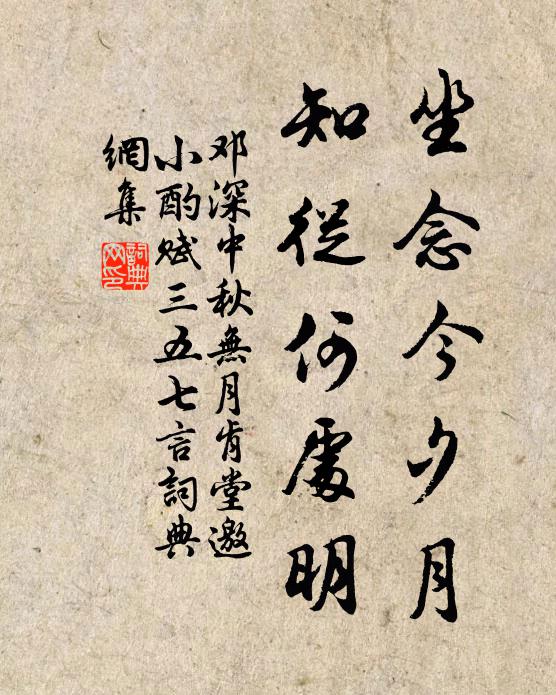 坐念今夕月
知從何處明
邓深中秋無月肯堂邀
小酌賦三五七言詞典
網集
詞典
网印